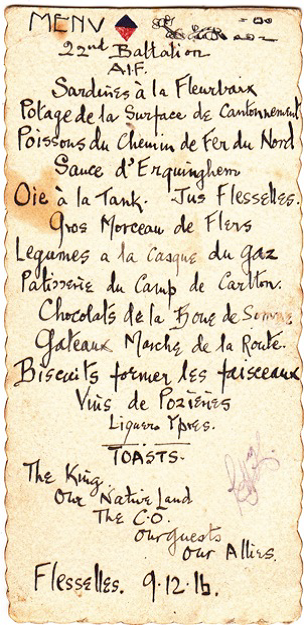 MENU
22nd Battalion
A.I.F.
Sardines à la Fleurbaix
Potage de la Surface de Cantonnement
Poissons du Chemin de Fer du Nord
Sauce d'Erquinghem
Oie à la Tank. Jus Flesselles.
Gros Morceau de Flers
Legumes a la Casque du Gaz
Patisserie du Camp de Carlton.
Chocolats de la Boue de Somme
Gateaux Marche de la Route.
Biscuits former les faisceaux
Vins de Pozieres
Liquers Ypres.
TOASTS.
The King.
Our Native Land
The C.O.
Our guests
Our Allies.
Flesselles. 9.12.16.